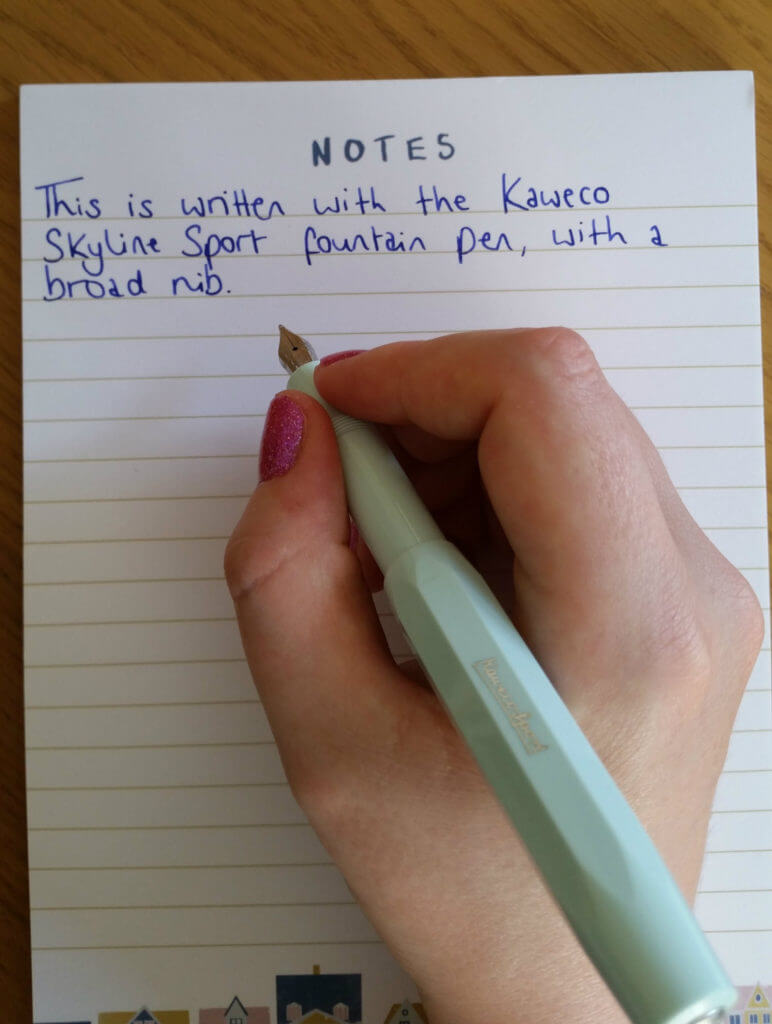 NOTES
This is written with the Kaweco
Skyline Sport fountain pen, with a
broad nib.
Kaweco Sport